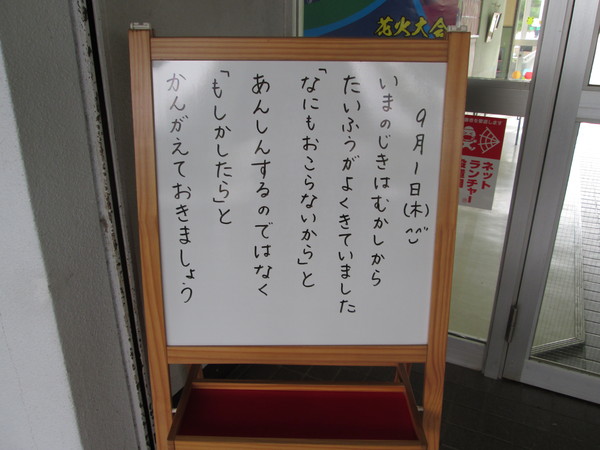 花火大会
9月1日(木)^^
いまのじきはむかしから
たいふうがよくきていました
「なにもおこらないから」と
あんしんするのではなく
「もしかしたら」と
かんがえておきましょう
ネット
ランチャー